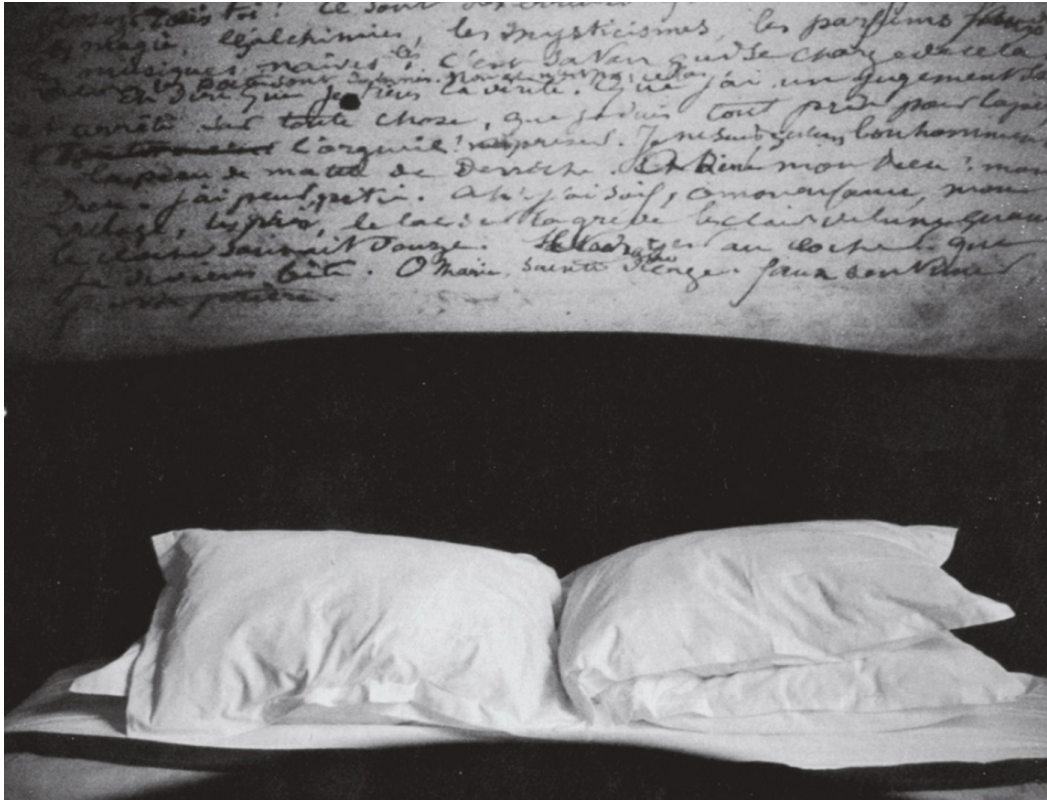 toi! Ce sont
magie, les alchimies, les mysticismes, les parfums
musiques naïves c'est Satan qui se charge de cela
les poètes sont damnés. Non ce n'est pas cela
Et dire que je tiens la vérité. Que j'ai un jugement
arrêté sur toute chose, que je suis tout prêt pour la
l'orgueil! à présent. Je ne suis qu'un bonhomme
la peau de ma tête se dessèche. mon Dieu! mon
Dieu. J'ai peur, pitié. Ah! j'ai soif, o mon enfance, mon
village, les prés, le lac la grève le clair de lune quand
le clocher sonnait douze. au clocher. que
je deviens bête. O Marie, Sainte Vierge. faux sentiment
prière.